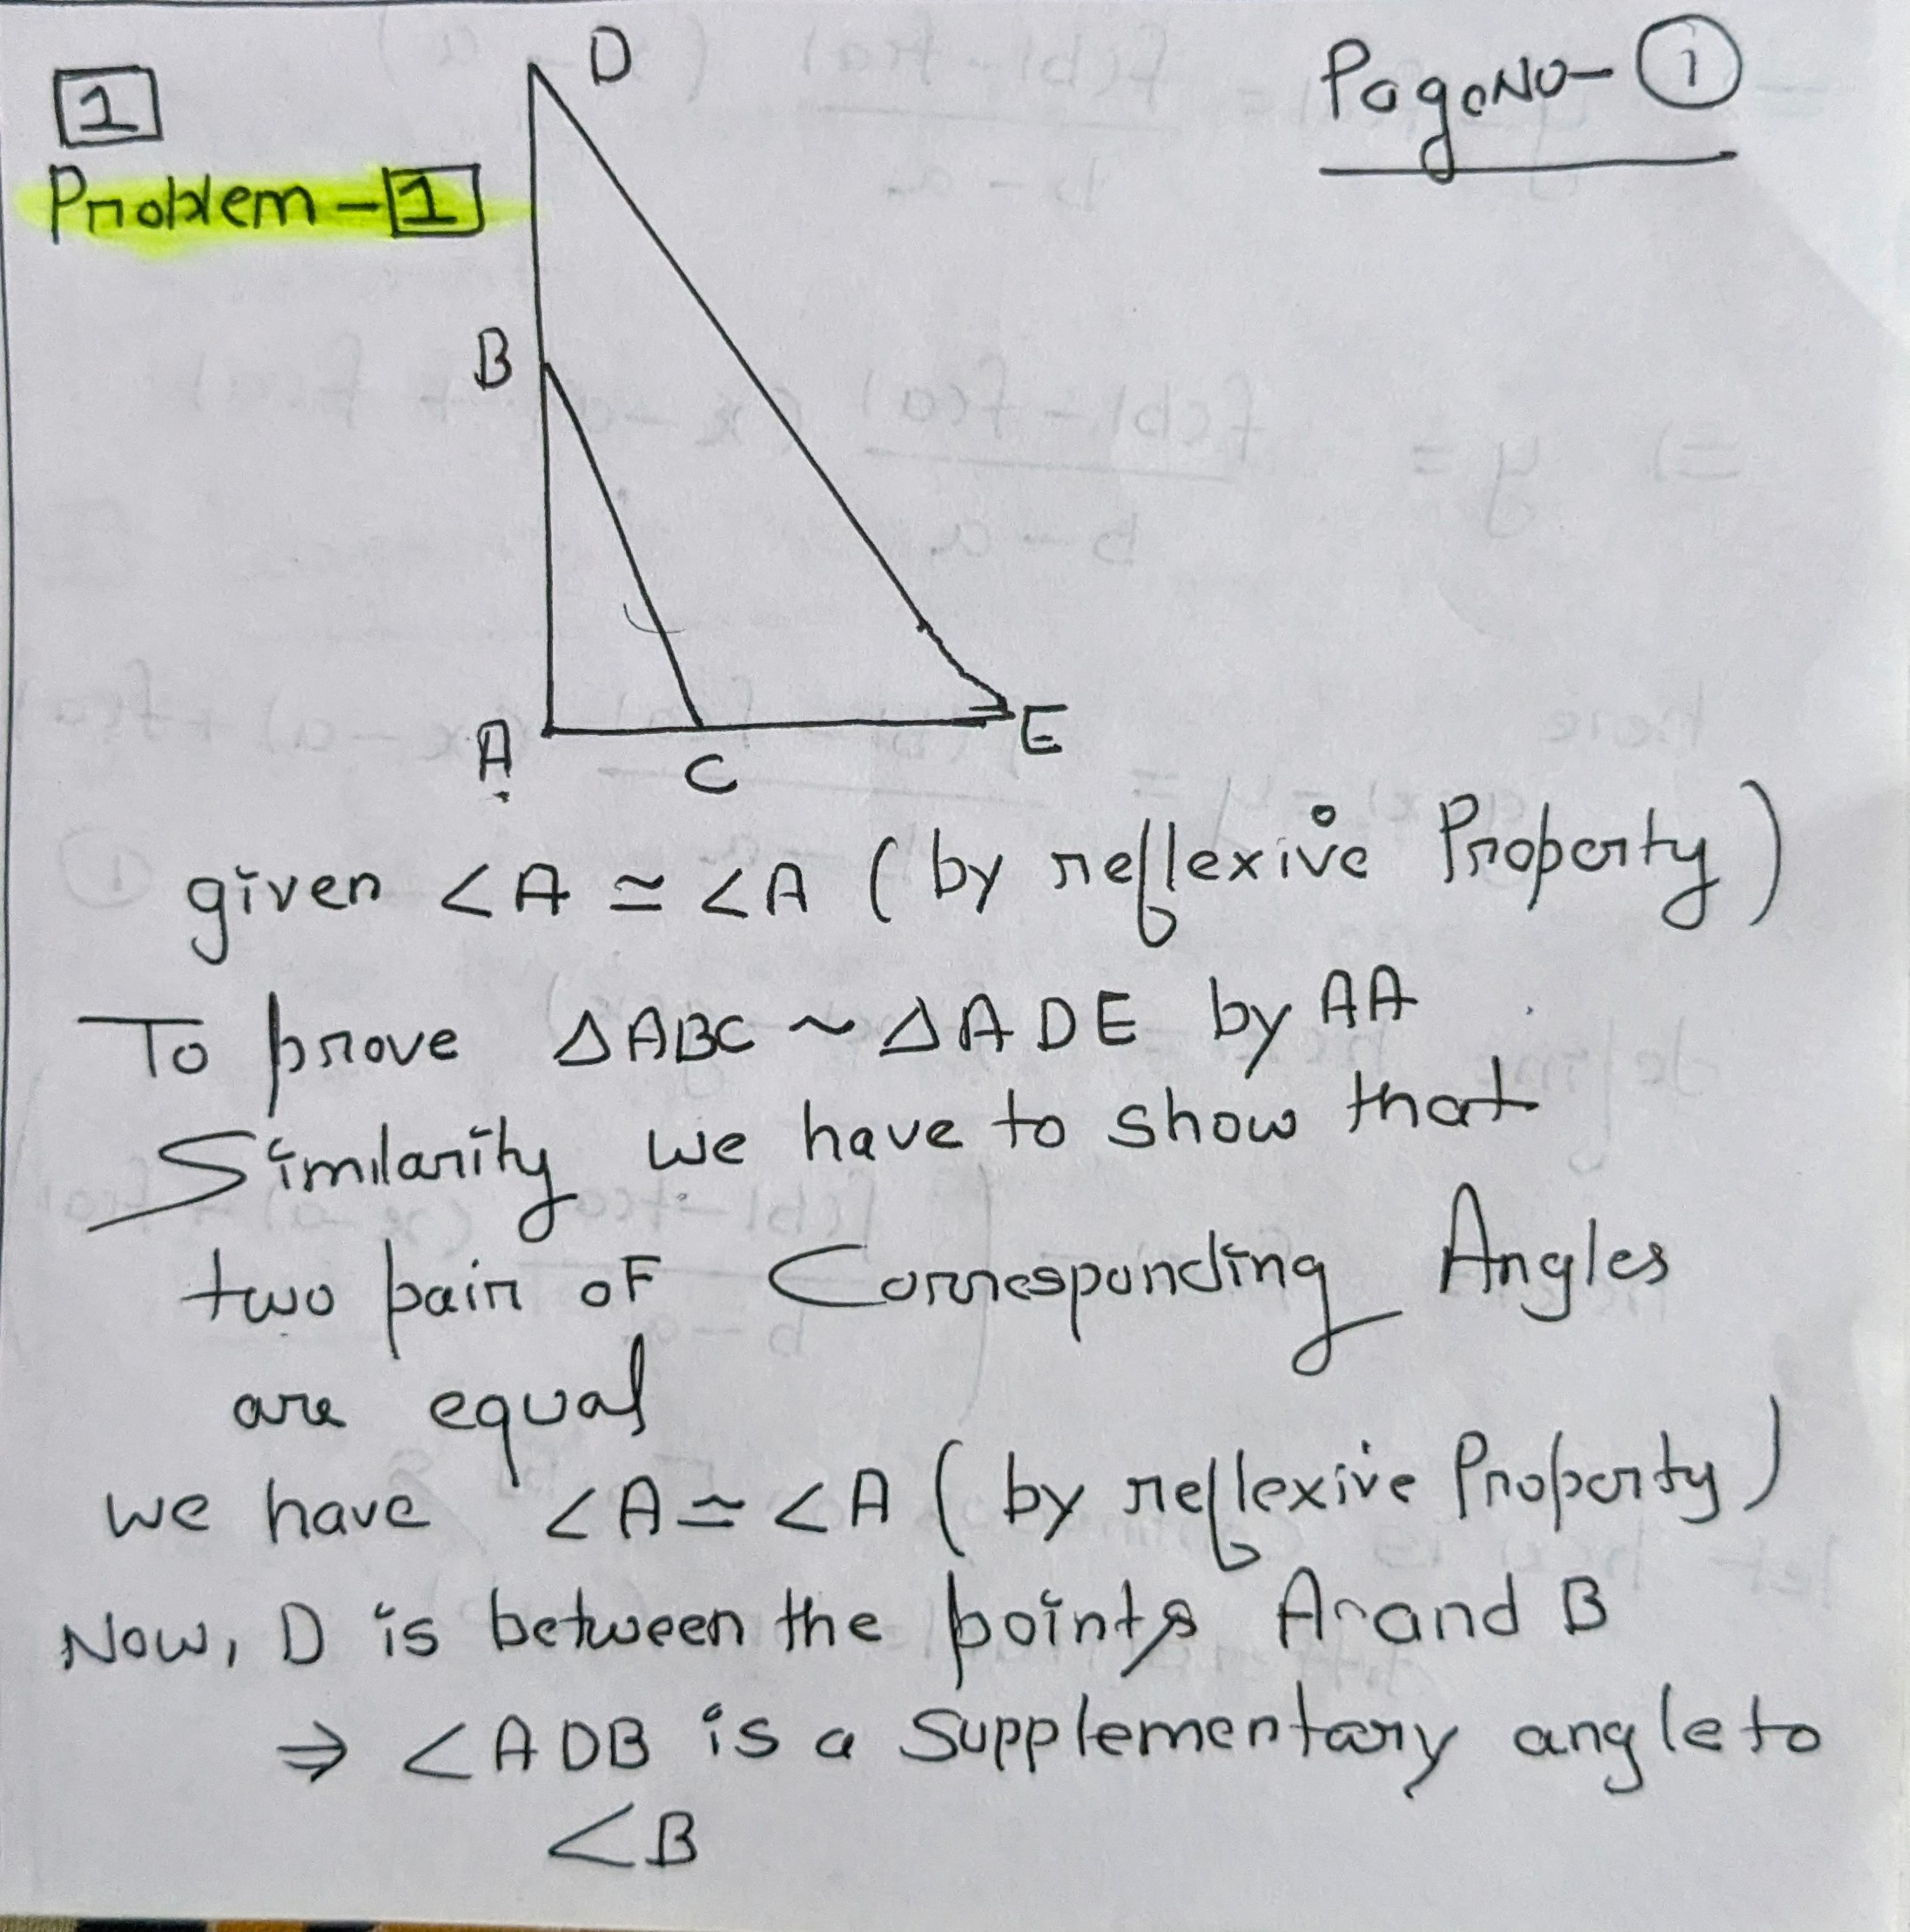 1
Page No- 1
Problem - 1
D
B
A
C
E
given ∠A ≃ ∠A (by reflexive Property)
To prove ΔABC ~ ΔADE by AA
Similarity we have to show that
two pair of Corresponding Angles
are equal
we have ∠A ≃ ∠A (by reflexive Property)
Now, D is between the points A and B
⇒ ∠ADB is a supplementary angle to
∠B